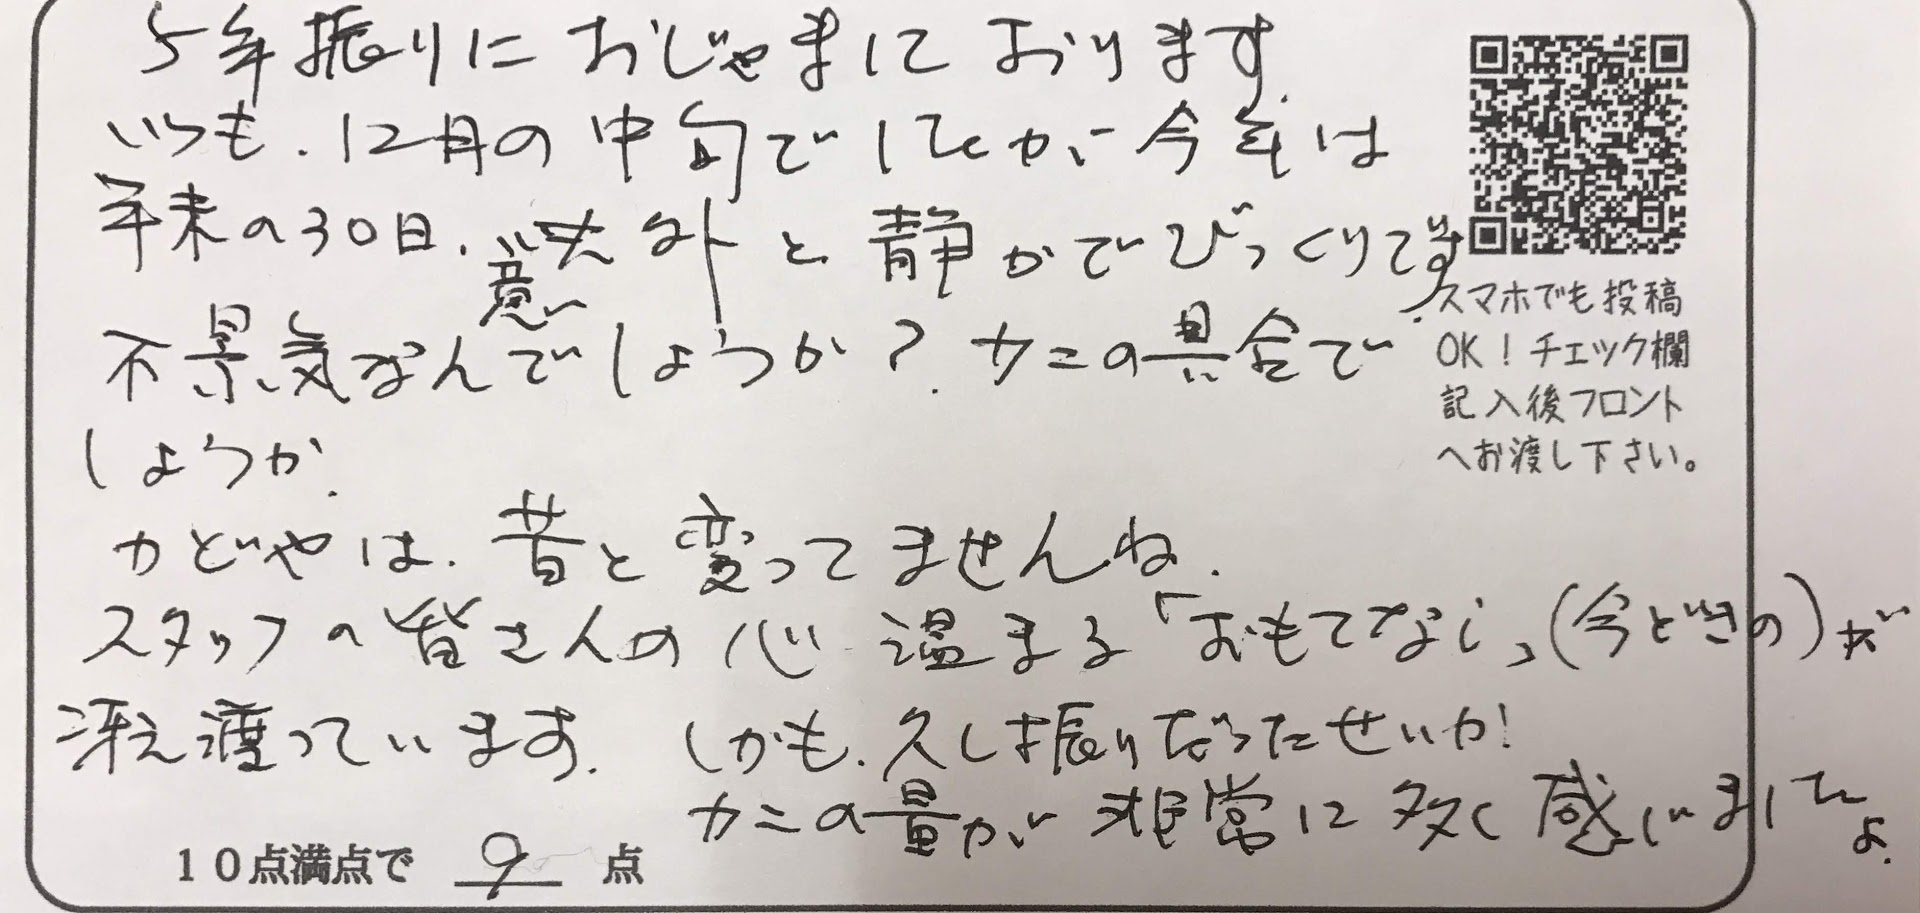 5年振りにおじゃましております.
いつも.12月の中旬でしたが今年は
年末の30日.意外と静かでびっくりです.
不景気なんでしょうか?.カニの具合で
しょうか.
かどやは.昔と変ってませんね.
スタッフの皆さんの心温まる「おもてなし」(今どきの)が
冴え渡っています.しかも.久し振りだったせいか!
カニの量が非常に多く感じましたよ.
スマホでも投稿
OK!チェック欄
記入後フロント
へお渡し下さい。
10点満点で 9 点